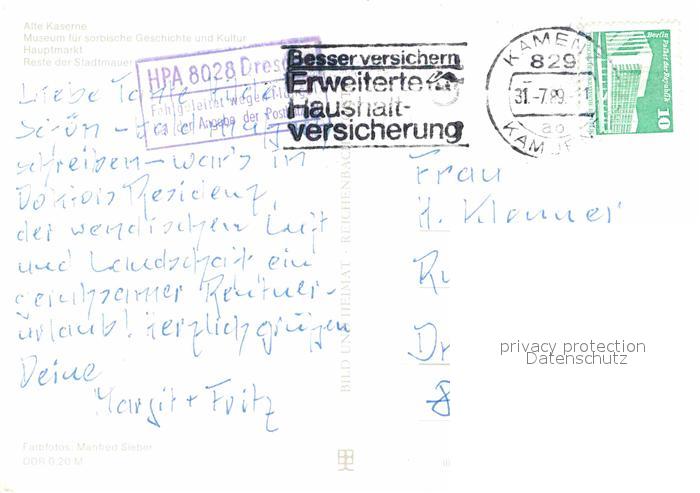 Alte Kaserne
Museum für sorbische Geschichte und Kultur
Hauptmarkt
Reste der Stadtmauer
HPA 8028 Dres
Fehlgeleitet wegen
der Angabe der Postl
Besser versichern
Erweiterte
Haushalt-
versicherung
KAMEN
829
31.-7.89.-11
ao
KAMJEN
Berlin
Palast der Republik
10
Liebe
schön
schreiben - war's in
Doktors Residenz,
der wendischen Luft
und Landschaft ein
geruhsamer Rentner-
urlaub! Herzlich grüßen
Deine
Margit + Fritz
Frau
H. Klemmer
Ru
Dr
8
privacy protection
Datenschutz
BILD UND HEIMAT · REICHENBACH
Farbfotos: Manfred Sieber
DDR 0,20 M